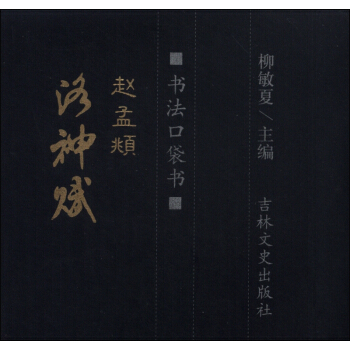 柳敏夏／主编
吉林文史出版社
书法口袋书
赵孟頫
洛神赋